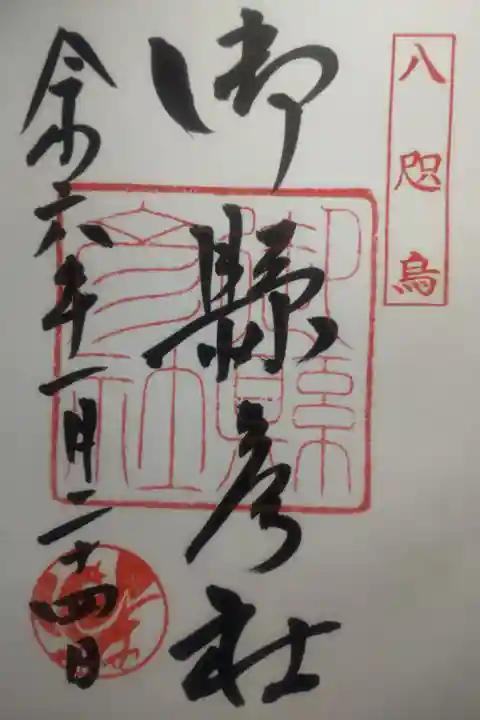 八咫烏
御縣彦社
令和六年一月二十四日